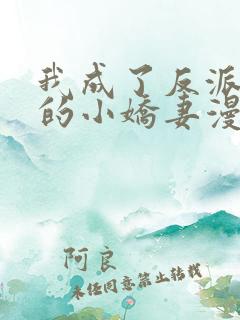 我成了反派
的小娇妻漫
阿良
未经同意禁止转载